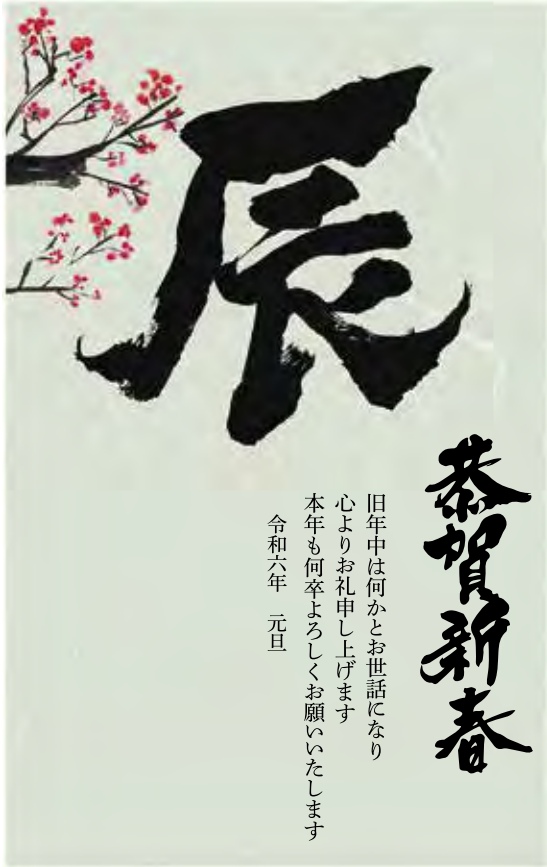 辰
恭賀新春
旧年中は何かとお世話になり
心よりお礼申し上げます
本年も何卒よろしくお願いいたします
令和六年　元旦